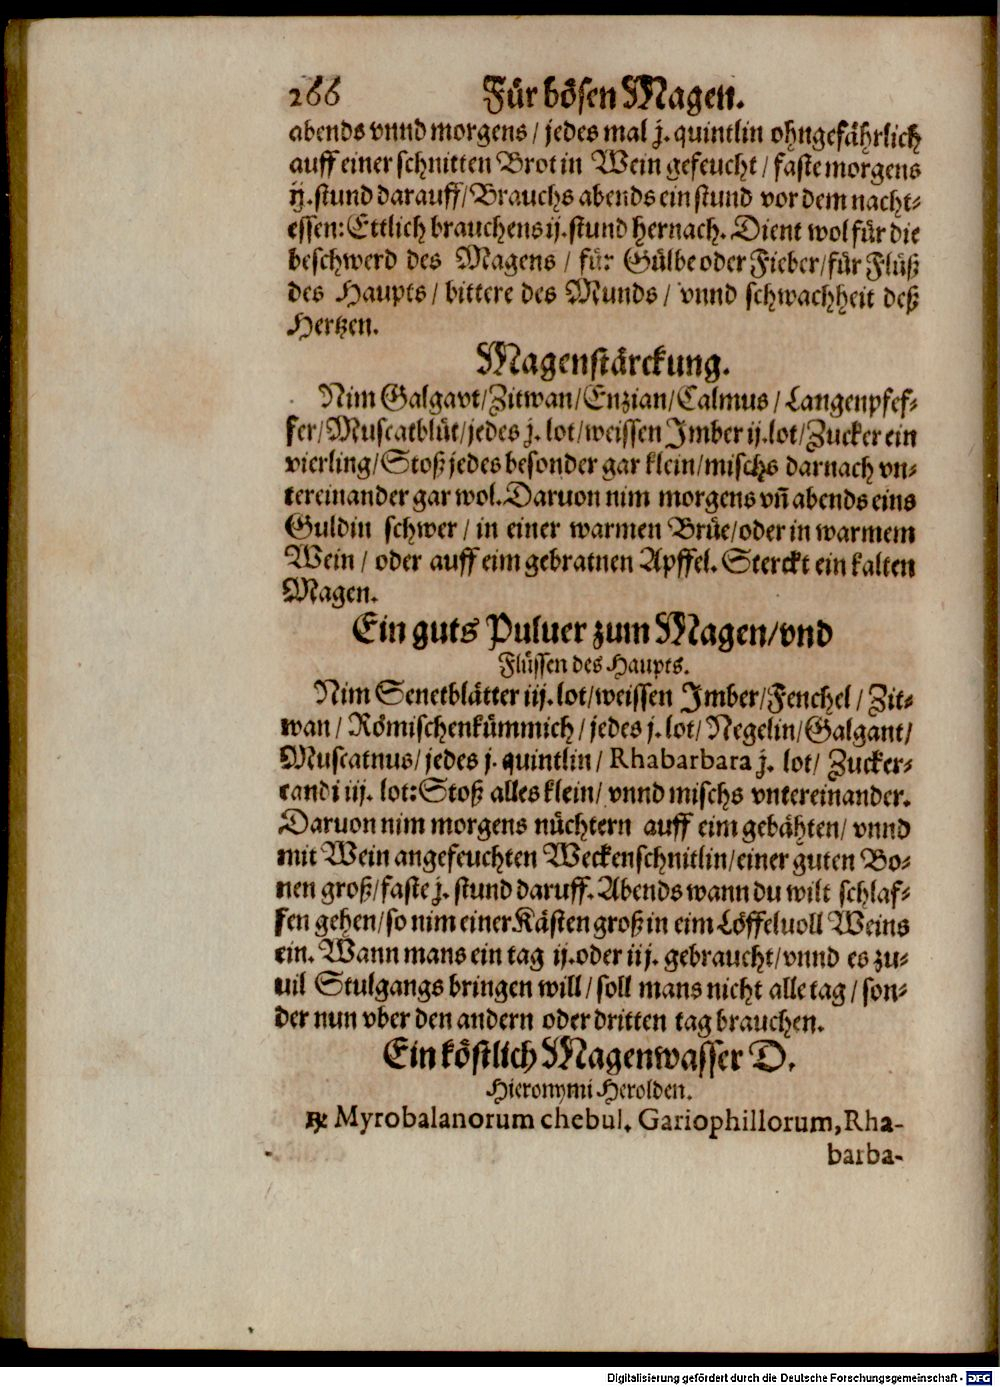 266 Für bösen Magen.
abends vnnd morgens / jedes mal j. quintlin ohngefährlich
auff einer schnitten Brot in Wein gefeucht / faste morgens
ij. stund darauff / Brauchs abends ein stund vor dem nacht-
essen: Ettlich brauchens ij. stund hernach. Dient wol für die
beschwerd des Magens / für Gülbe oder Fieber / für Flüß
des Haupts / bittere des Munds / vnnd schwachheit deß
Hertzen.
Magenstärckung.
Nim Galgavt / Zitwan / Enzian / Calmus / Langenpfef-
fer / Muscatblüt / jedes j. lot / weissen Imber ij. lot / Zucker ein
vierling / Stoß jedes besonder gar klein / mischs darnach vn-
tereinander gar wol. Daruon nim morgens vñ abends eins
Guldin schwer / in einer warmen Brüe / oder in warmem
Wein / oder auff eim gebratnen Apffel. Sterckt ein kalten
Magen.
Ein guts Puluer zum Magen / vnd
Flüssen des Haupts.
Nim Senetblätter iij. lot / weissen Imber / Fenchel / Zit-
wan / Römischenkümmich / jedes j. lot / Negelin / Galgant /
Muscatnus / jedes j. quintlin / Rhabarbara j. lot / Zucker-
candi iij. lot: Stoß alles klein / vnnd mischs vntereinander.
Daruon nim morgens nüchtern auff eim gebähten / vnnd
mit Wein angefeuchten Weckenschnitlin / einer guten Bo-
nen groß / faste j. stund daruff. Abends wann du wilt schlaf-
fen gehen / so nim einer Kästen groß in eim Löffeluoll Weins
ein. Wann mans ein tag ij. oder iij. gebraucht / vnnd es zu-
uil Stulgangs bringen will / soll mans nicht alle tag / son-
der nun vber den andern oder dritten tag brauchen.
Ein köstlich Magenwasser D.
Hieronymi Herolden.
℞ Myrobalanorum chebul. Gariophillorum, Rha-
barba-
Digitalisierung gefördert durch die Deutsche Forschungsgemeinschaft - DFG